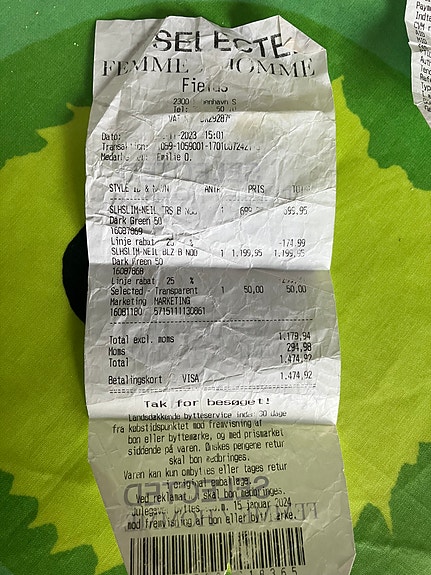 SELECTED
FEMME HOMME
Fields
2300 København S
Tel: 50
VAT
Dato: 2023 15:01
Transaktion:
Medarbejder: Emilie O.
STYLE ID & NAVN ANTAL PRIS TOTAL
SLHSLIM-NEIL TRS B NOO 1 699,95 699,95
Dark Green 50
16087869
Linje rabat 25 % -174,99
SLHSLIM-NEIL BLZ B NOO 1 1.199,95 1.199,95
Dark Green 50
16087868
Linje rabat 25 %
Selected Transparent 1 50,00 50,00
Marketing MARKETING
16081180 5715111130861
Total excl. moms 1.179,94
Moms 294,98
Total 1.474,92
Betalingskort VISA 1.474,92
Tak for besøget!
Landsdækkende bytteservice inden 30 dage
fra købstidspunktet mod fremvisning af
bon eller byttemærke, og med prismærket
siddende på varen. Ønskes pengene retur
skal bon medbringes.
Varen kan kun ombyttes eller tages retur
i original emballage.
Ved reklamation skal bon medbringes.
Julegaver byttes 15 januar 2024
mod fremvisning af bon eller byttemærke.
18365